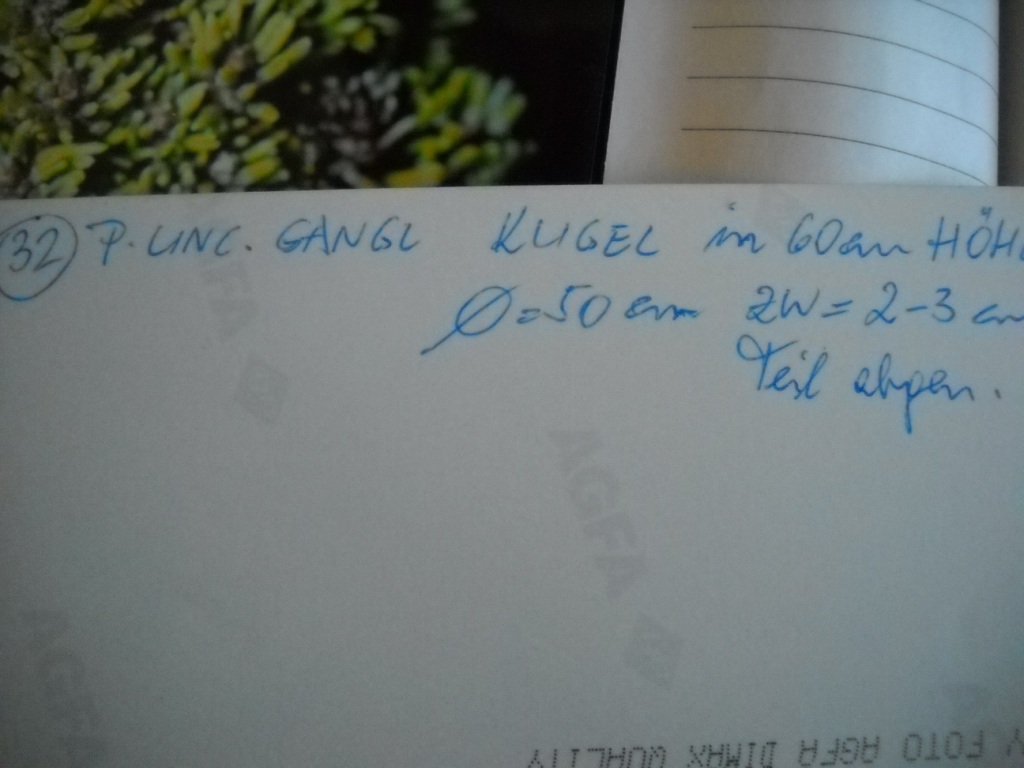 32 P. UNC. GANGL KUGEL in 60 cm HÖHE
Ø = 50 cm ZW = 2-3 cm
Teil abgen.
AGFA
AGFA
AGFA
FOTO AGFA DIMAX QUALITY